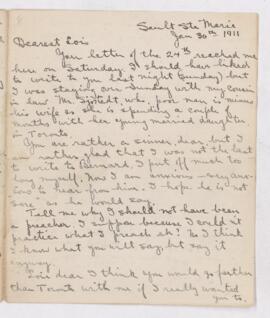 Sault Ste Marie
Jan 30th 1911
Dearest Lois
Your letter of the 24th reached me
here on Saturday. I should have liked
to write to you last night (Sunday) but
I was staying over Sunday with my cousin
in law Mr. who, poor man, is minus
his wife as she is spending a couple of
months with her young married daughter
in Toronto.
You are rather a sinner, dear, but I
am rather glad that I was not the last
to write to Bernard, I put off much too
long myself. Now I am anxious - very anx-
ious to hear from him. I hope he is not
"sore" as he would say.
Tell me why I should not have been
a preacher. I suppose because I could not
practice what I preach eh? No I think
I know what you will say, but say it
anyway.
Lois dear I think you would go farther
than Toronto with me if I really wanted
you to.